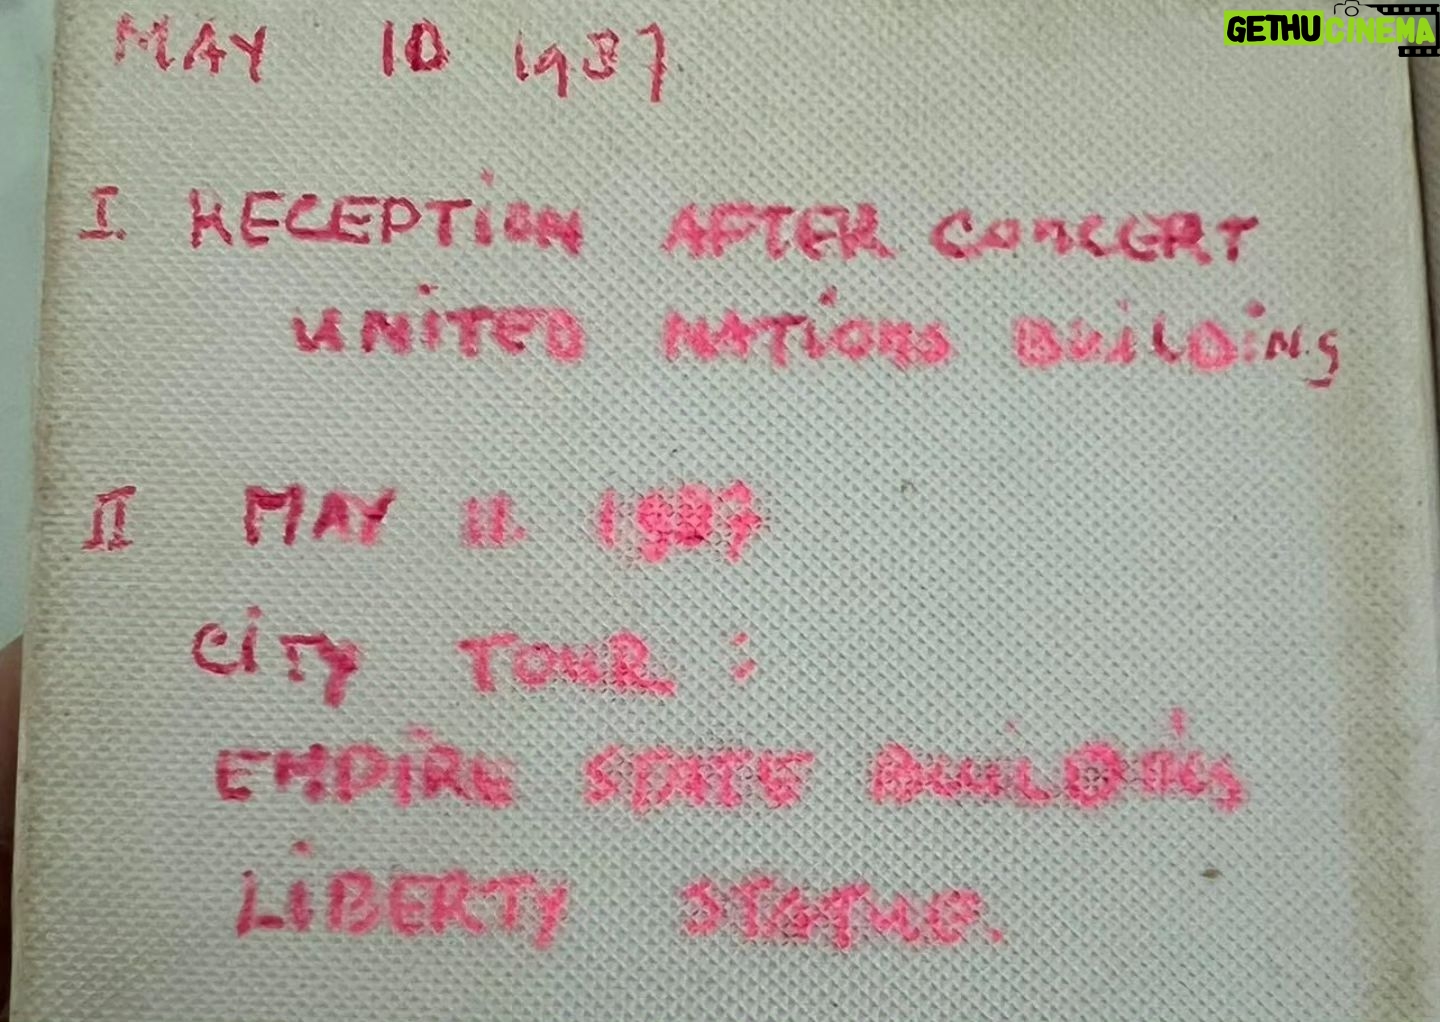 GETHU CINEMA
MAY 10 1987
I RECEPTION AFTER CONCERT
UNITED NATIONS BUILDING
II MAY 11. 1987
CITY TOUR :
EMPIRE STATE BUILDING
LIBERTY STATUE.